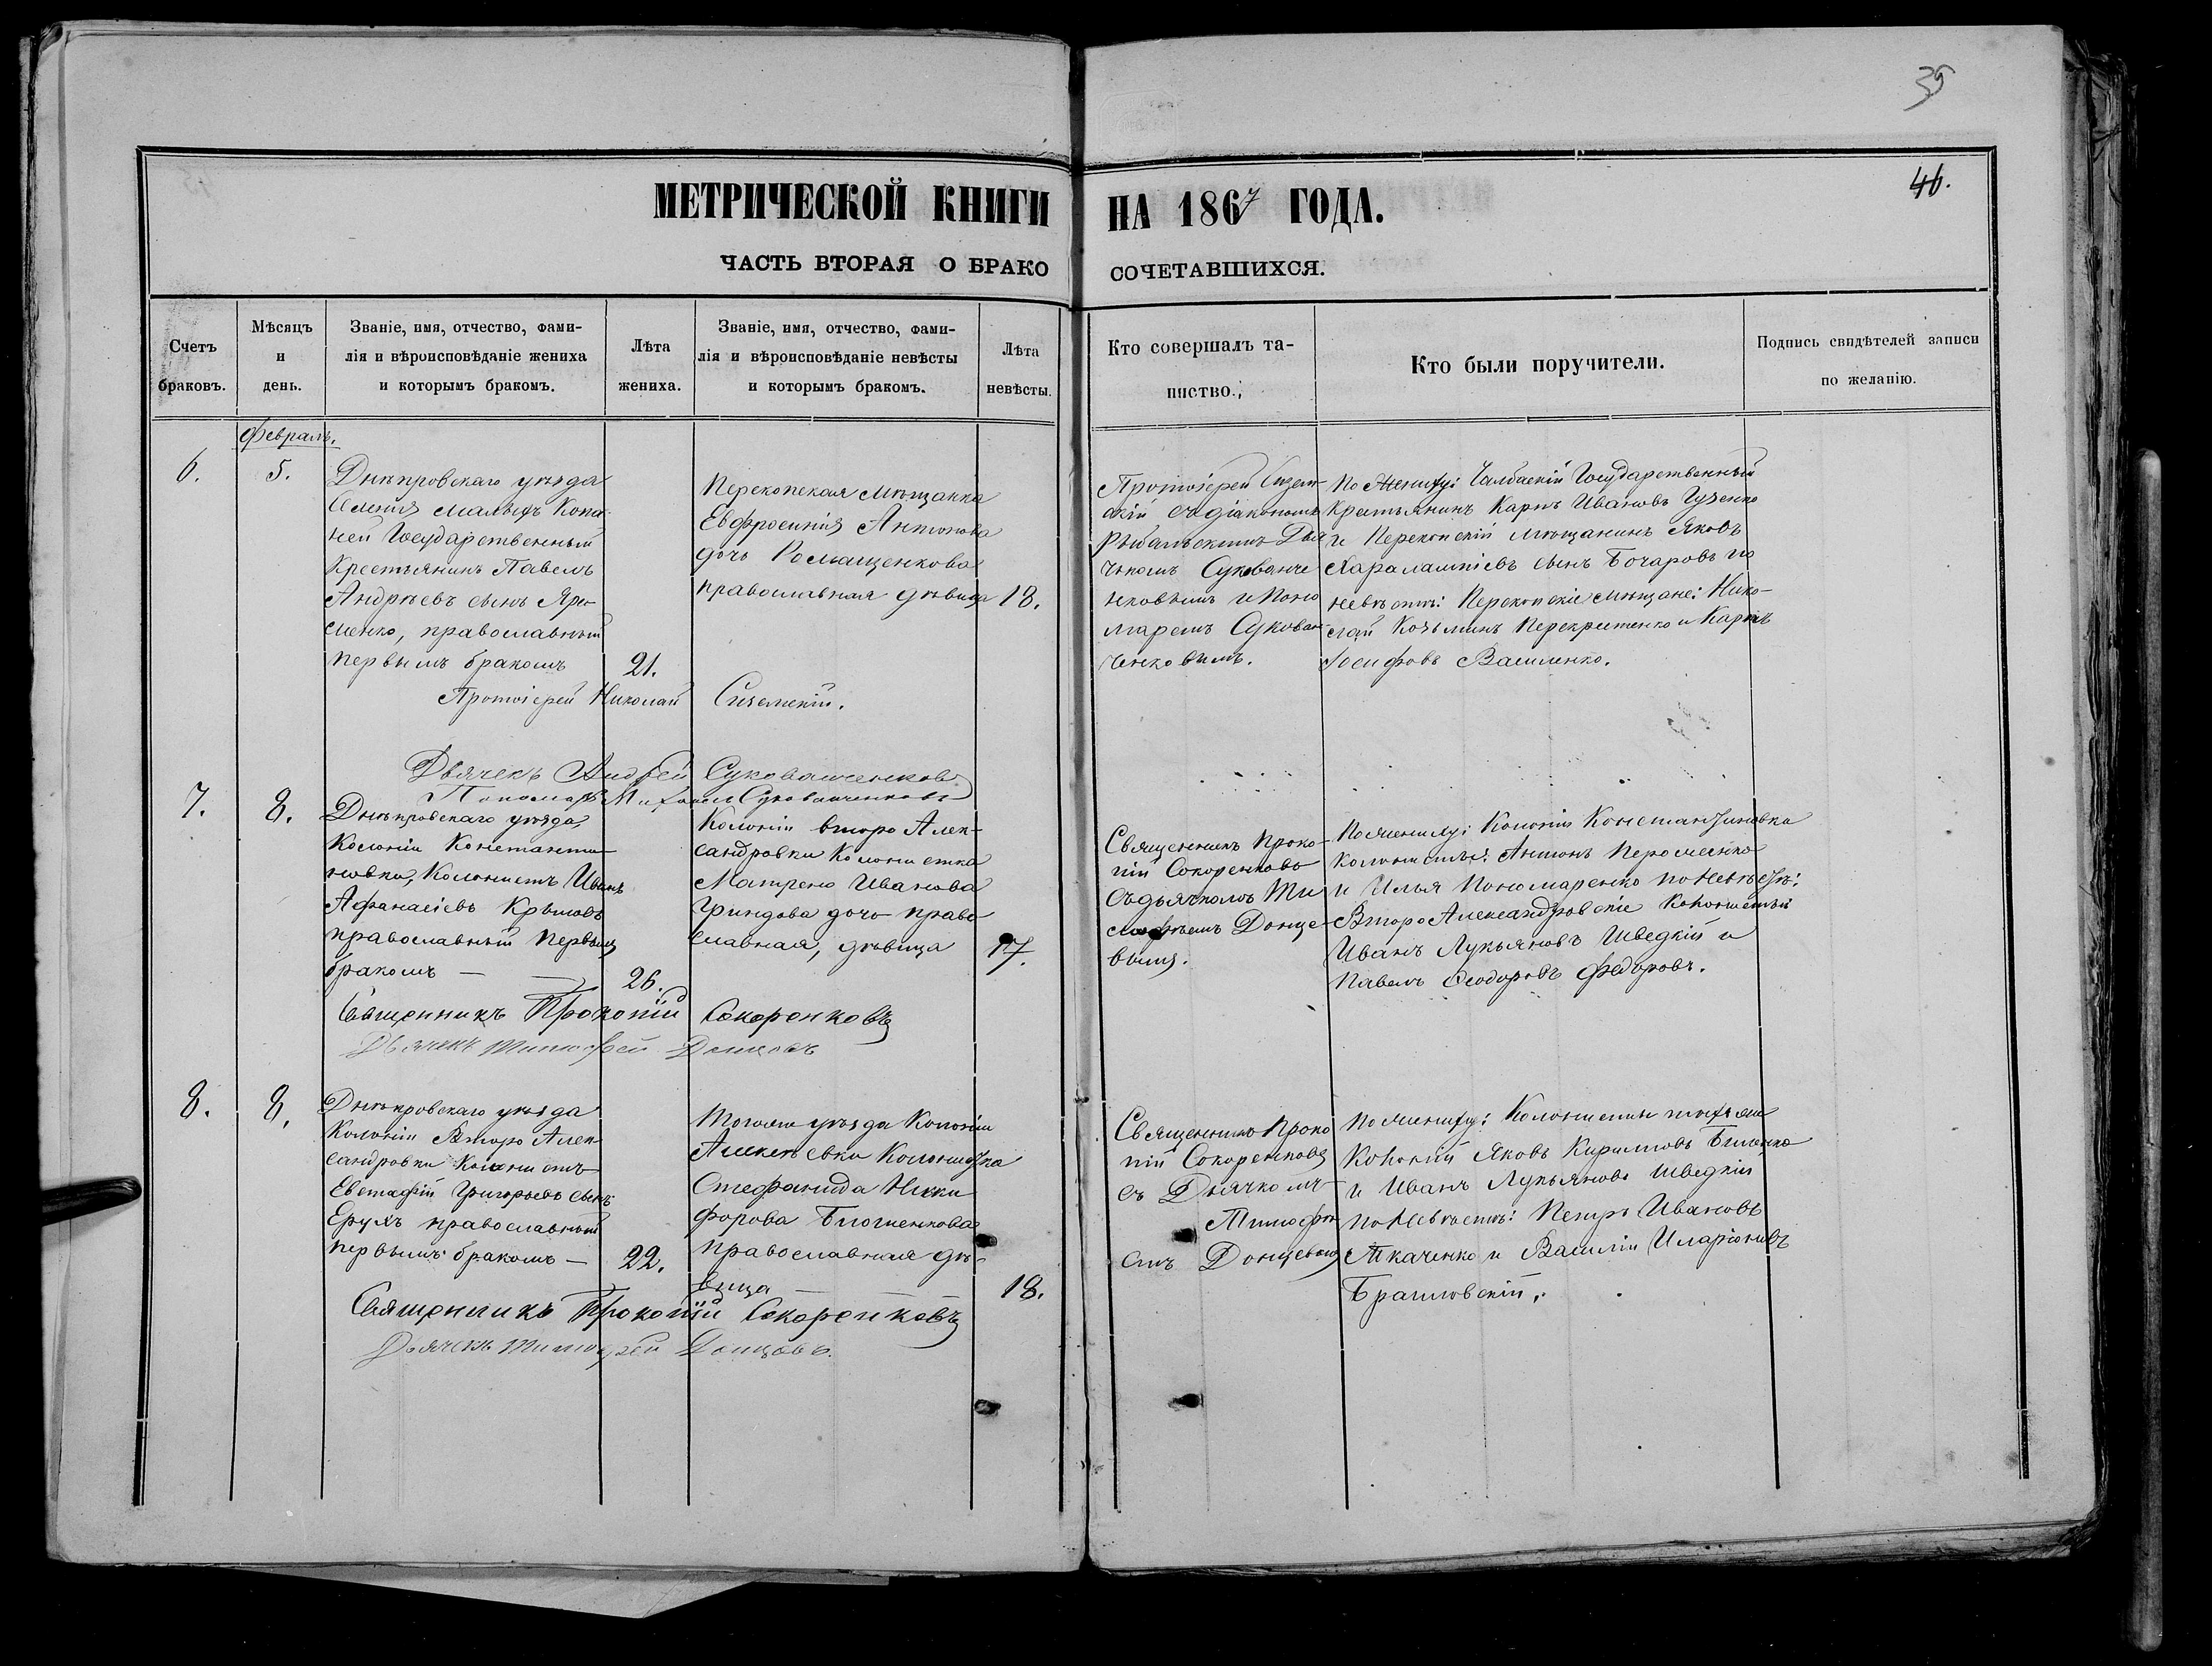 39
46.
МЕТРИЧЕСКОЙ КНИГИ НА 1867 ГОДА.
ЧАСТЬ ВТОРАЯ О БРАКОСОЧЕТАВШИХСЯ.
Счетъ браковъ.
Мѣсяцъ и день.
Званіе, имя, отчество, фами-
лія и вѣроисповѣданіе жениха
и которымъ бракомъ.
Лѣта жениха.
Званіе, имя, отчество, фами-
лія и вѣроисповѣданіе невѣсты
и которымъ бракомъ.
Лѣта невѣсты.
Кто совершалъ та-
инство.
Кто были поручители.
Подпись свидѣтелей записи
по желанію.
Февраль.
6.
5.
Днѣпровскаго уѣзда
Селенія Малыхъ Копа-
ней Государственный
Крестьянинъ Павелъ
Андреевъ сынъ Яро-
шенко, православный
первымъ бракомъ
21.
Перекопская мѣщанка
Евфросинія Антонова
дочь Ромащенкова
православная дѣвица
18.
Протоіерей Сизем-
скій съ діакономъ
Рыбальскимъ Дья
чкомъ Сукованче
нковымъ и Поно
маремъ Суkован-
ченковымъ.
По Женихѣ: Чалбаскій Государственный
Крестьянинъ Карпъ Ивановъ Гузенко
и Перекопскій мѣщанинъ Яковъ
Харалампіевъ сынъ Бочаровъ по
невѣстѣ: Перекопскіе мѣщане: Нико-
лай Козьминъ Перекрестенко и Карпъ
Іосифовъ Василенко.
Протоіерей Николай Сиземскій.
Дьячекъ Андрей Суковатченковъ
Пономарь Михаил Суковатченковъ
7.
8.
Днѣпровскаго уѣзда,
Колоніи Константи-
новки, Колонистъ Иванъ
Афанасіевъ Крыловъ
православный первымъ
бракомъ —
26.
Колоніи второ Алек-
сандровки Колонистка
Матрена Иванова
Гриндова дочь право
славная, дѣвица
17.
Священникъ Проко-
пій Сокоренковъ
съ дьячкомъ Ти
мофѣемъ Донце-
вымъ.
По женихѣ: Колоніи Константиновки
колонисты: Антонъ Перошенко
и Илья Пономаренко по невѣстѣ:
Второ Александровскіе Колонисты
Иванъ Лукьяновъ Шведкій и
Павелъ Ѳеодоровъ Федоровъ.
Священникъ Прокопій Сокоренковъ
Дьячекъ Тимофей Донцовъ
8.
8.
Днѣпровскаго уѣзда
Колоніи Второ Алек
сандровки Колонистъ
Евстафій Григорьевъ сынъ
Ерухъ православный
первымъ бракомъ —
22.
Тогоже уѣзда Колоніи
Алексѣевки Колонистка
Стефанида Ники
форова Билошенкова
православная дѣ-
вица
18.
Священникъ Проко
пій Сокоренковъ
съ Дьячкомъ
Тимофѣе
емъ Донцевымъ
По женихѣ: Колонисты тѣхъ же
Колоній Яковъ Кириловъ Биленко
и Иванъ Лукьяновъ Шведкій
по невѣстѣ: Петръ Ивановъ
Ткаченко и Василій Иларіоновъ
Браиловскій.
Священникъ Прокопій Сокоренковъ
Дьячекъ Тимофей Донцовъ.